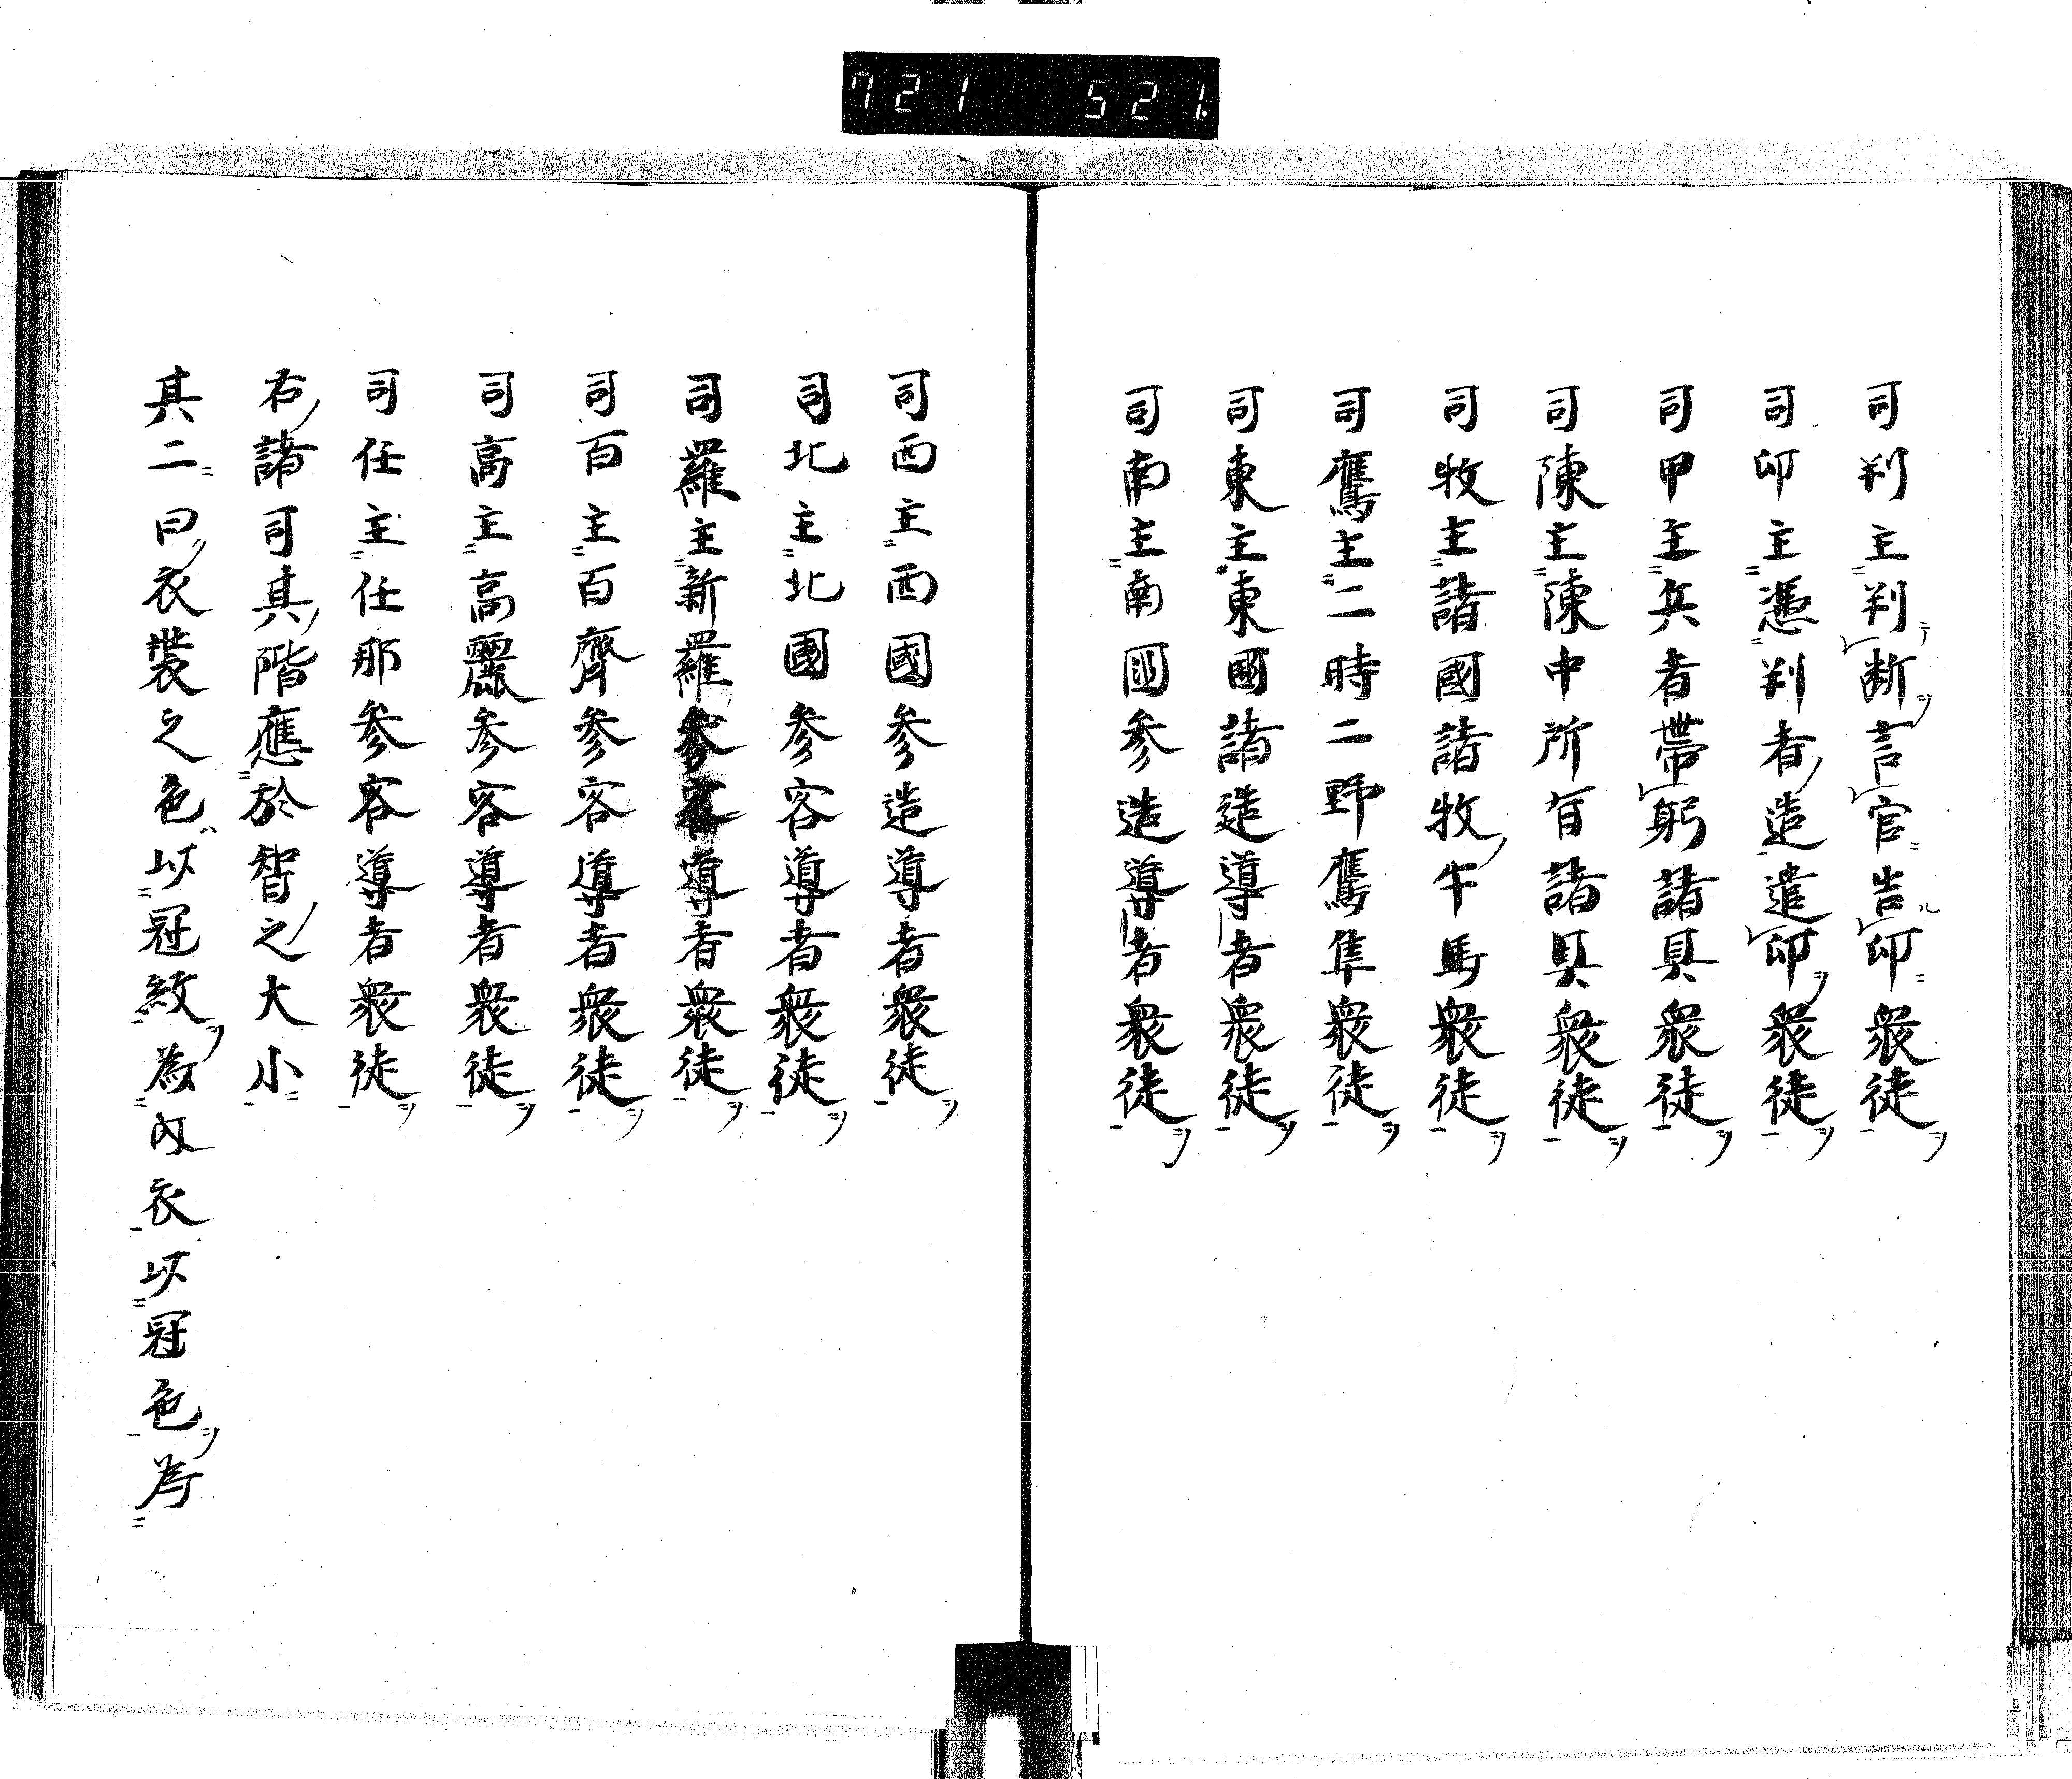 721 521.
司判主判断言官吉印衆徒
司印主憑判者造遣印衆徒
司甲主兵者帯躬諸具衆徒
司陳主陳中所百諸具衆徒
司牧主諸國諸牧牛馬衆徒
司鷹主二時二野鷹隼衆徒
司東主東國諸造導者衆徒
司南主南國参造導者衆徒
司西主西國参造導者衆徒
司北主北國参客導者衆徒
司羅主新羅参客導者衆徒
司百主百齊参客導者衆徒
司高主高麗参客導者衆徒
司任主任那参客導者衆徒
右諸司其階應於智之大小
其二曰衣装之色以冠紋為内衣以冠色為